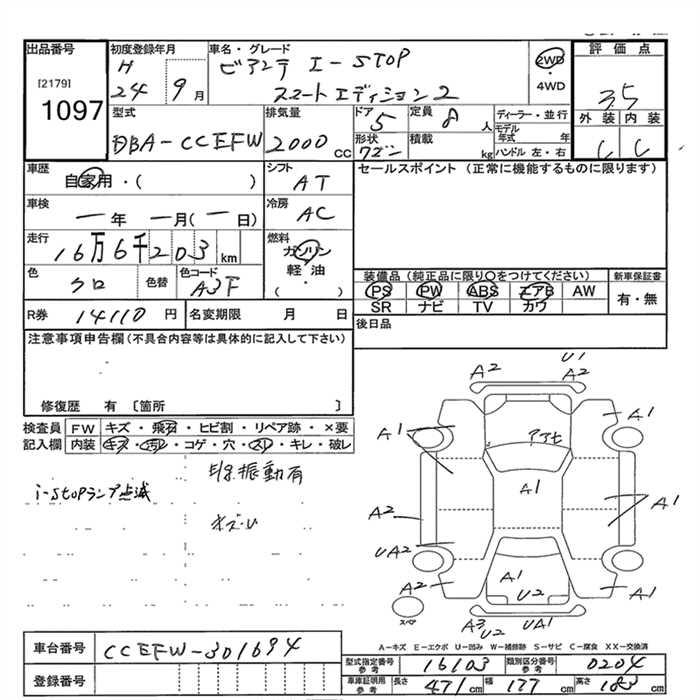 出品番号 初度登録年月 車名・グレード 評価点
[2179] H ビアンテ I-STOP 2WD
1097 24 9月 スマートエディション2 ・4WD 3.5
型式 排気量 ドア 5 定員 8人 ディーラー・並行 外装 内装
DBA-CCEFW 2000cc 形状 ワゴン 積載 kg モデル年式 年 C C
ハンドル 左・右
車歴 シフト セールスポイント (正常に機能するものに限ります)
自家用・( ) AT
車検 冷房
一年 一月(一日) AC
走行 燃料
16万6千203km ガソリン
軽・油
( )
色 色替 色コード 装備品(純正品に限り○をつけてください) 新車保証書
クロ A3F PS PW ABS エアB AW 有・無
SR ナビ TV カワ
R券 14110円 名変期限 月 日 後日品
注意事項申告欄(不具合内容等は具体的に記入して下さい)
修復歴 有 〔箇所 〕
検査員 FW キズ・飛石・ヒビ割・リペア跡・×要
記入欄 内装 キズ・汚れ・コゲ・穴・スレ・キレ・破レ
振動有
i-stopランプ点滅
A2 U1
A2
A1 A1
A1
A2 A1
UA2
A2 A1 U2 A1
A3 U2 UA1
スペア
A-キズ E-エクボ U-凹み W-補修跡 S-サビ C-腐食 XX-交換済
車台番号 CCEFW-301694
型式指定番号 参考 16103 類別区分番号 参考 0204
登録番号
車庫証明用 参考 長さ 471cm 幅 177cm 高さ 183cm